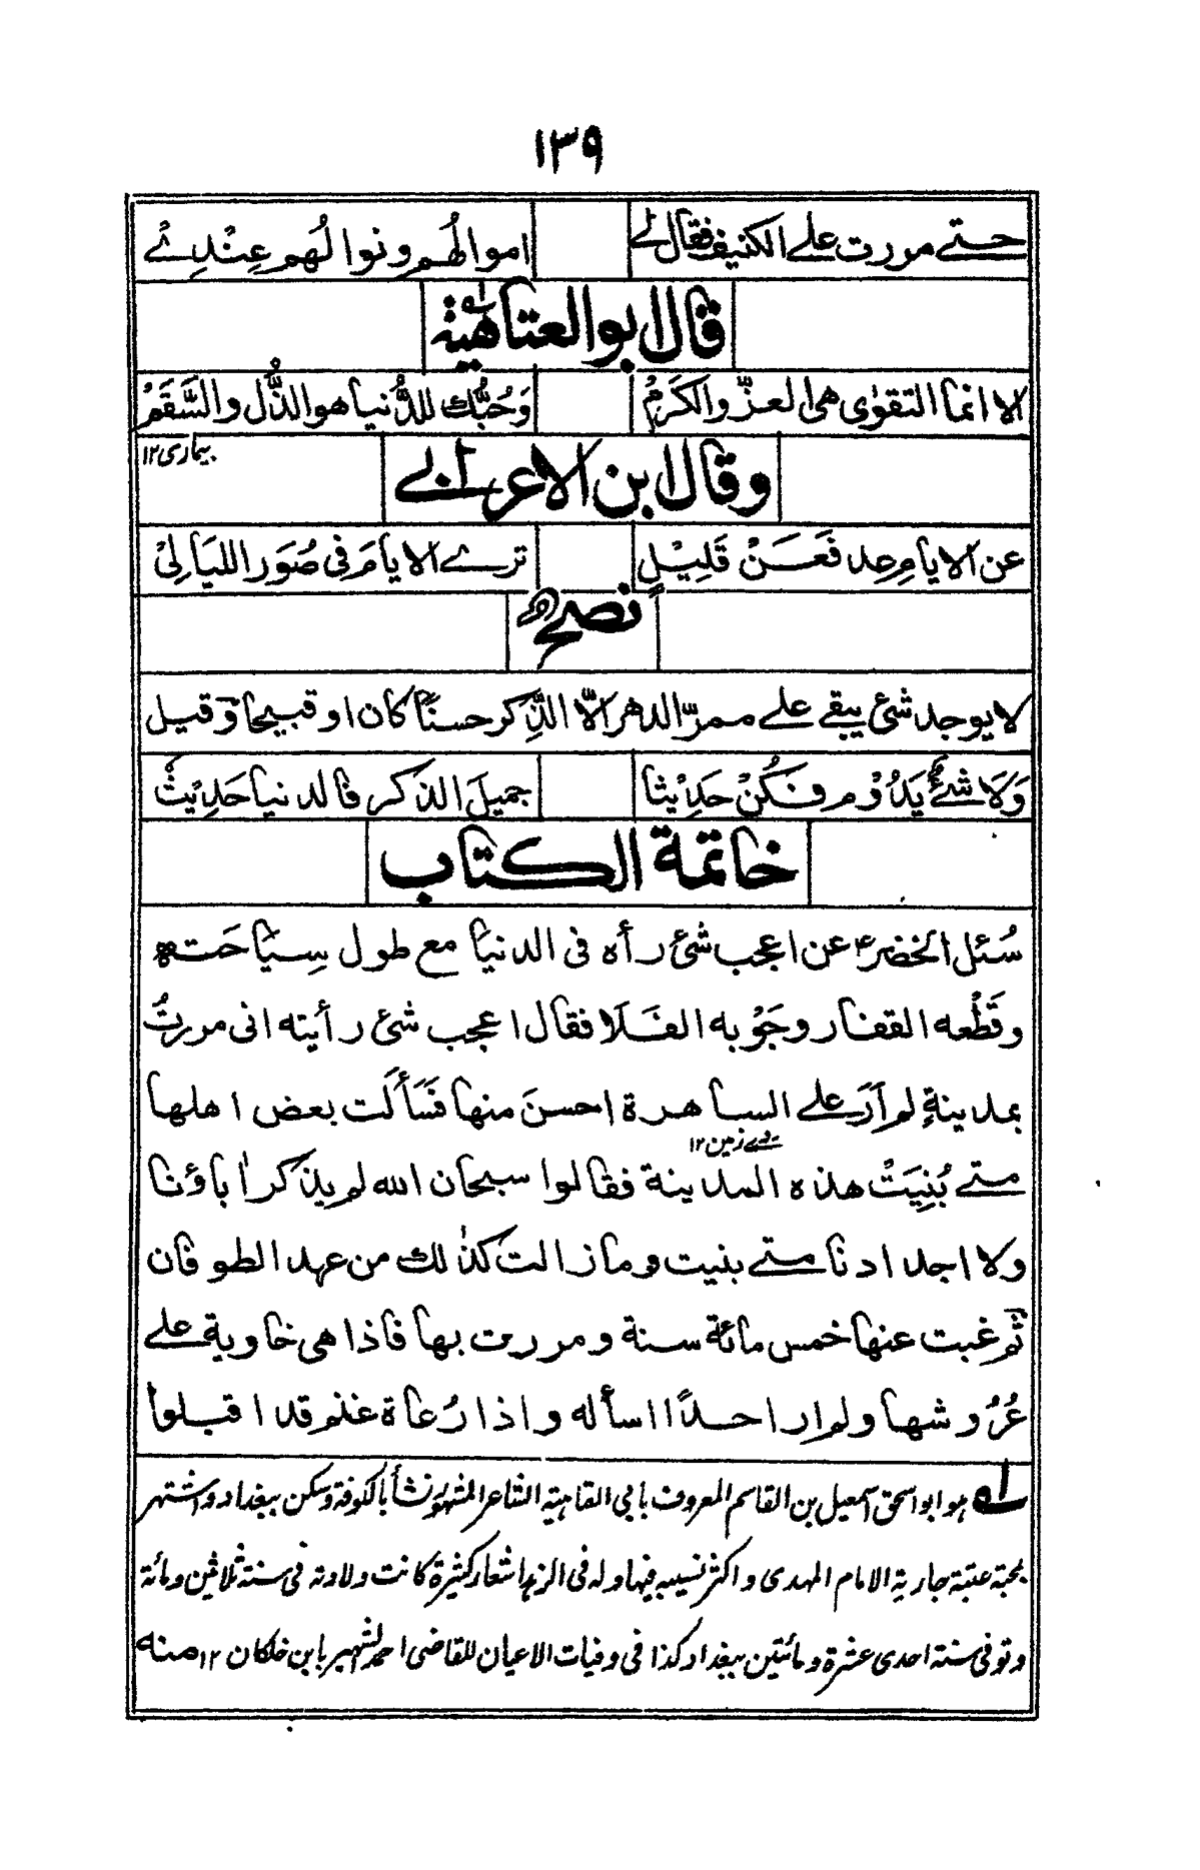 ١٣٩
حتے مررت علے الکنیف فقال لے اموالُهم ونوالُهم عِنْدِےْ
قال ابوالعتاهیة
الا انما التقوٰى هی العزّ والکَرَمُ وَحُبُّك للدُّنیا هو الذُّل والسَّقَمُ
بیماری ١٢
وقال ابن الاعرابے
عن الایام عِد فَعَنْ قَلِیْلٍ ترے الایامَ فی صُوَر اللیَالِیْ
نصح
لا یوجد شئ یبقے علے ممرّ الدهر الّا الذِّكر حسنًا کان او قبیحا وقیل
وَلَا شَئٌ یَدُوْم فَکُنْ حَدِیْثا جمیلَ الذکر فالدنیا حَدِیْثُ
خاتمة الکتاب
سُئل الخضرؑ عن اعجب شئ رأه فی الدنیا مع طول سِیَاحَته
وقَطْعه القفار وجَوْبه الفلا فقال اعجب شئ رأیته انی مررتُ
بمدینةٍ لم اَرَ علے الساهرة احسنَ منها فَسَأَلت بعض اهلها
روے زمین ١٢
متے بُنِیَتْ هذه المدینة فقالوا سبحان الله لم یذکر اٰباؤنا
ولا اجدادنا متے بنیت وما زالت کذٰلك من عهد الطوفان
ثم غبت عنها خمس مائة سنة ومررت بها فاذا هی خاویة علے
عُرُوشها ولم ار احدًا اسأله واذا رُعاة غنم قد اقبلوا
له هو ابو اسحق اسمعیل بن القاسم المعروف بابی العتاهیة الشاعر المشهور نشأ بالکوفة وسکن ببغداد واشتهر
بمحبة عتبة جاریة الامام المهدی واکثر نسیبه فیها وله فی الزهد اشعار کثیرة کانت ولادته فی سنة ثلاثین ومائة
وتوفی سنة احدی عشرة ومائتین ببغداد کذا فی وفیات الاعیان للقاضی احمد الشهیر بابن خلکان ١٢ منه